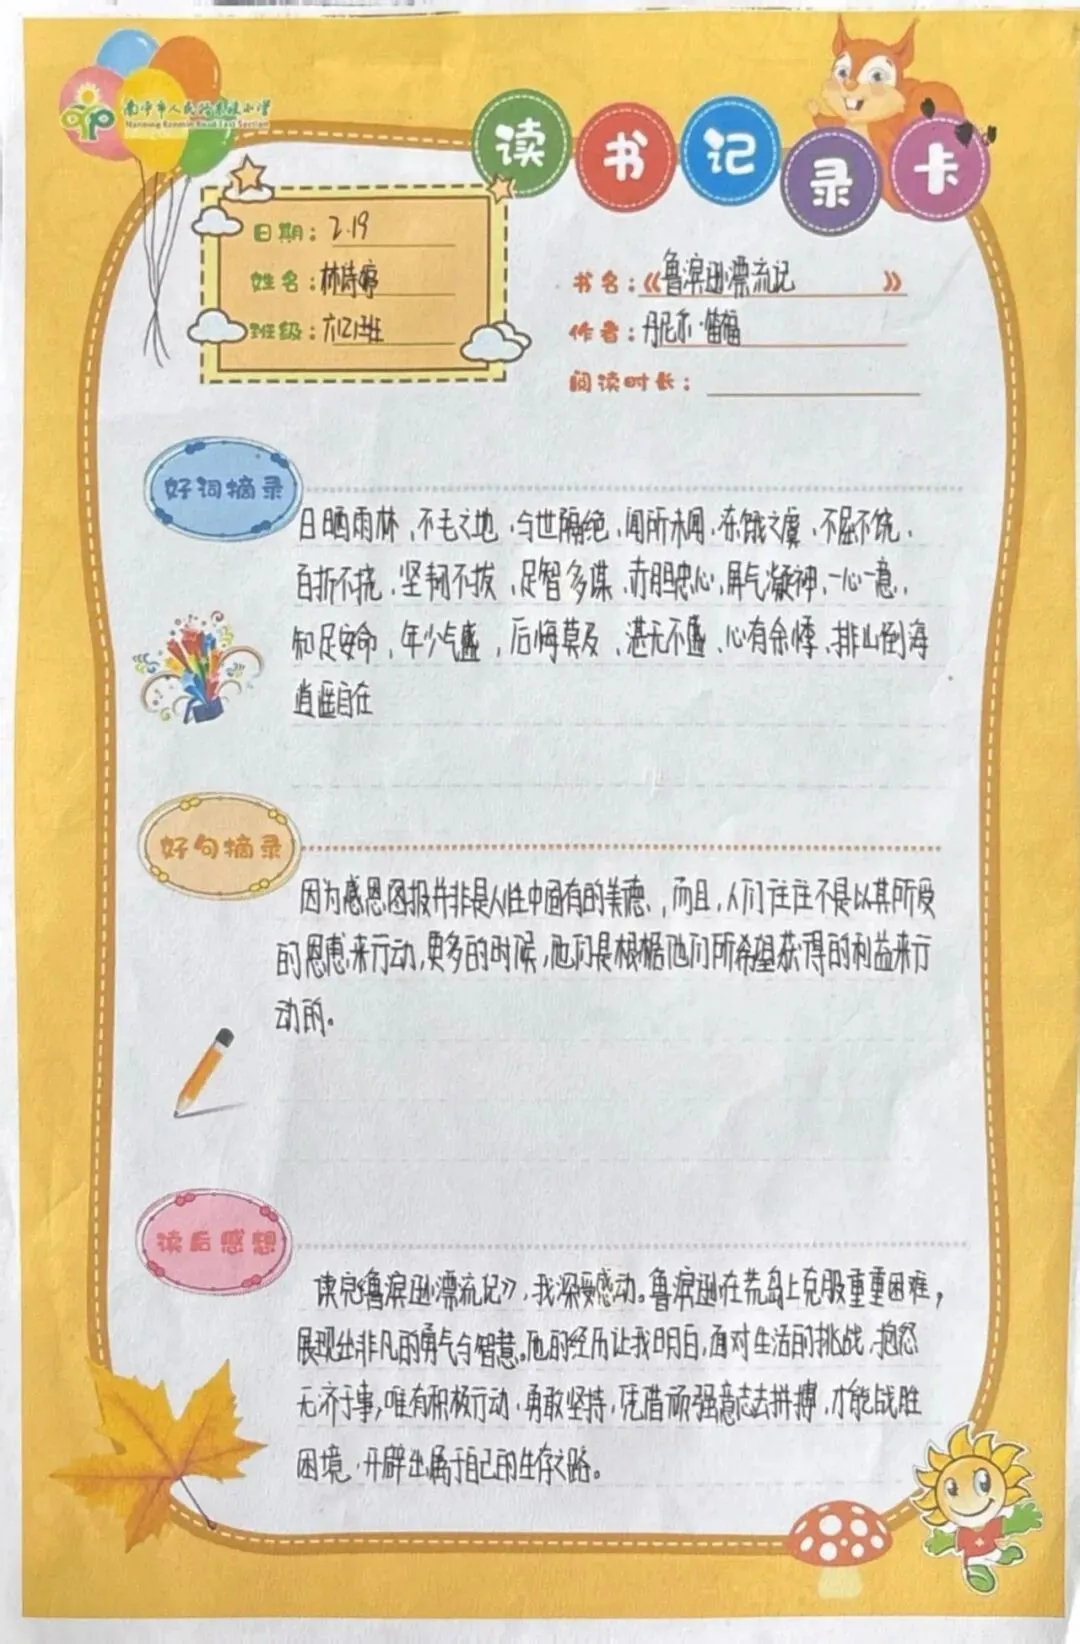 南宁市人民路东段小学
Nanning Renmin Road East Section
读书记录卡
日期：2.19
姓名：林诗婷
班级：六(2)班
书名：《鲁滨逊漂流记》
作者：丹尼尔·笛福
阅读时长：
好词摘录
日晒雨林、不毛之地、与世隔绝、闻所未闻、冻饿之虞、不屈不饶、
百折不挠、坚韧不拔、足智多谋、赤胆忠心、屏气凝神、一心一意、
知足安命、年少气盛、后悔莫及、湛无不盛、心有余悸、排山倒海
逍遥自在
好句摘录
因为感恩图报并非是人性中固有的美德，而且，人们往往不是以其所受
的恩惠来行动，更多的时候，他们是根据他们所希望获得的利益来行
动的。
读后感想
读完《鲁滨逊漂流记》，我深受感动。鲁滨逊在荒岛上克服重重困难，
展现出非凡的勇气与智慧。他的经历让我明白，面对生活的挑战，抱怨
无济于事，唯有积极行动，勇敢坚持，凭借顽强意志去拼搏，才能战胜
困境，开辟出属于自己的生存之路。